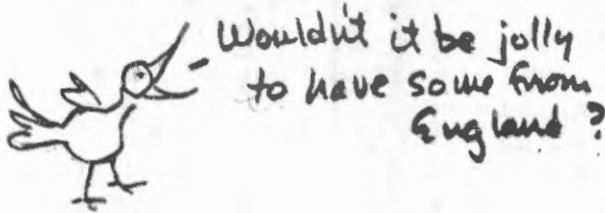 Wouldn't it be jolly
to have some from
England ?